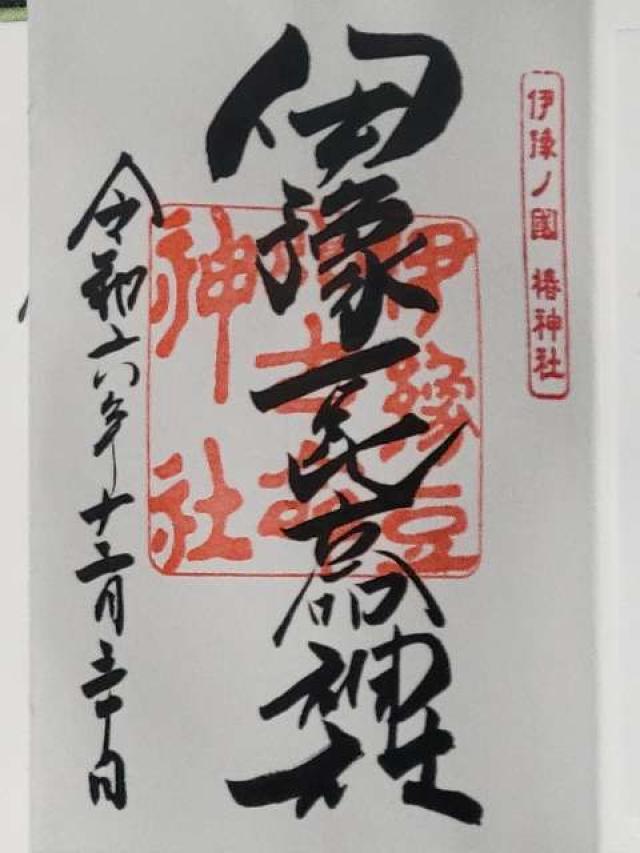 伊豫ノ國 椿神社
伊豫豆比古命神社
伊豫豆
比古命
神社
令和六年十二月三十日